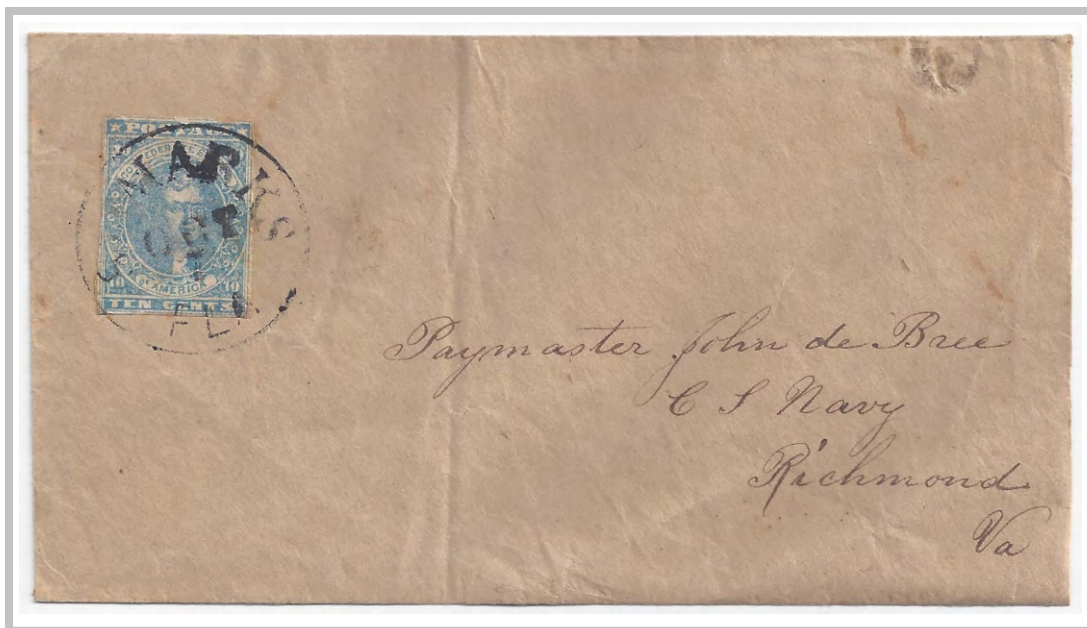 POSTAGE
CONFEDERATE
OF AMERICA
10 10
TEN CENTS
ST MARKS
OCT
FLA
Paymaster John de Bree
C S Navy
Richmond
Va